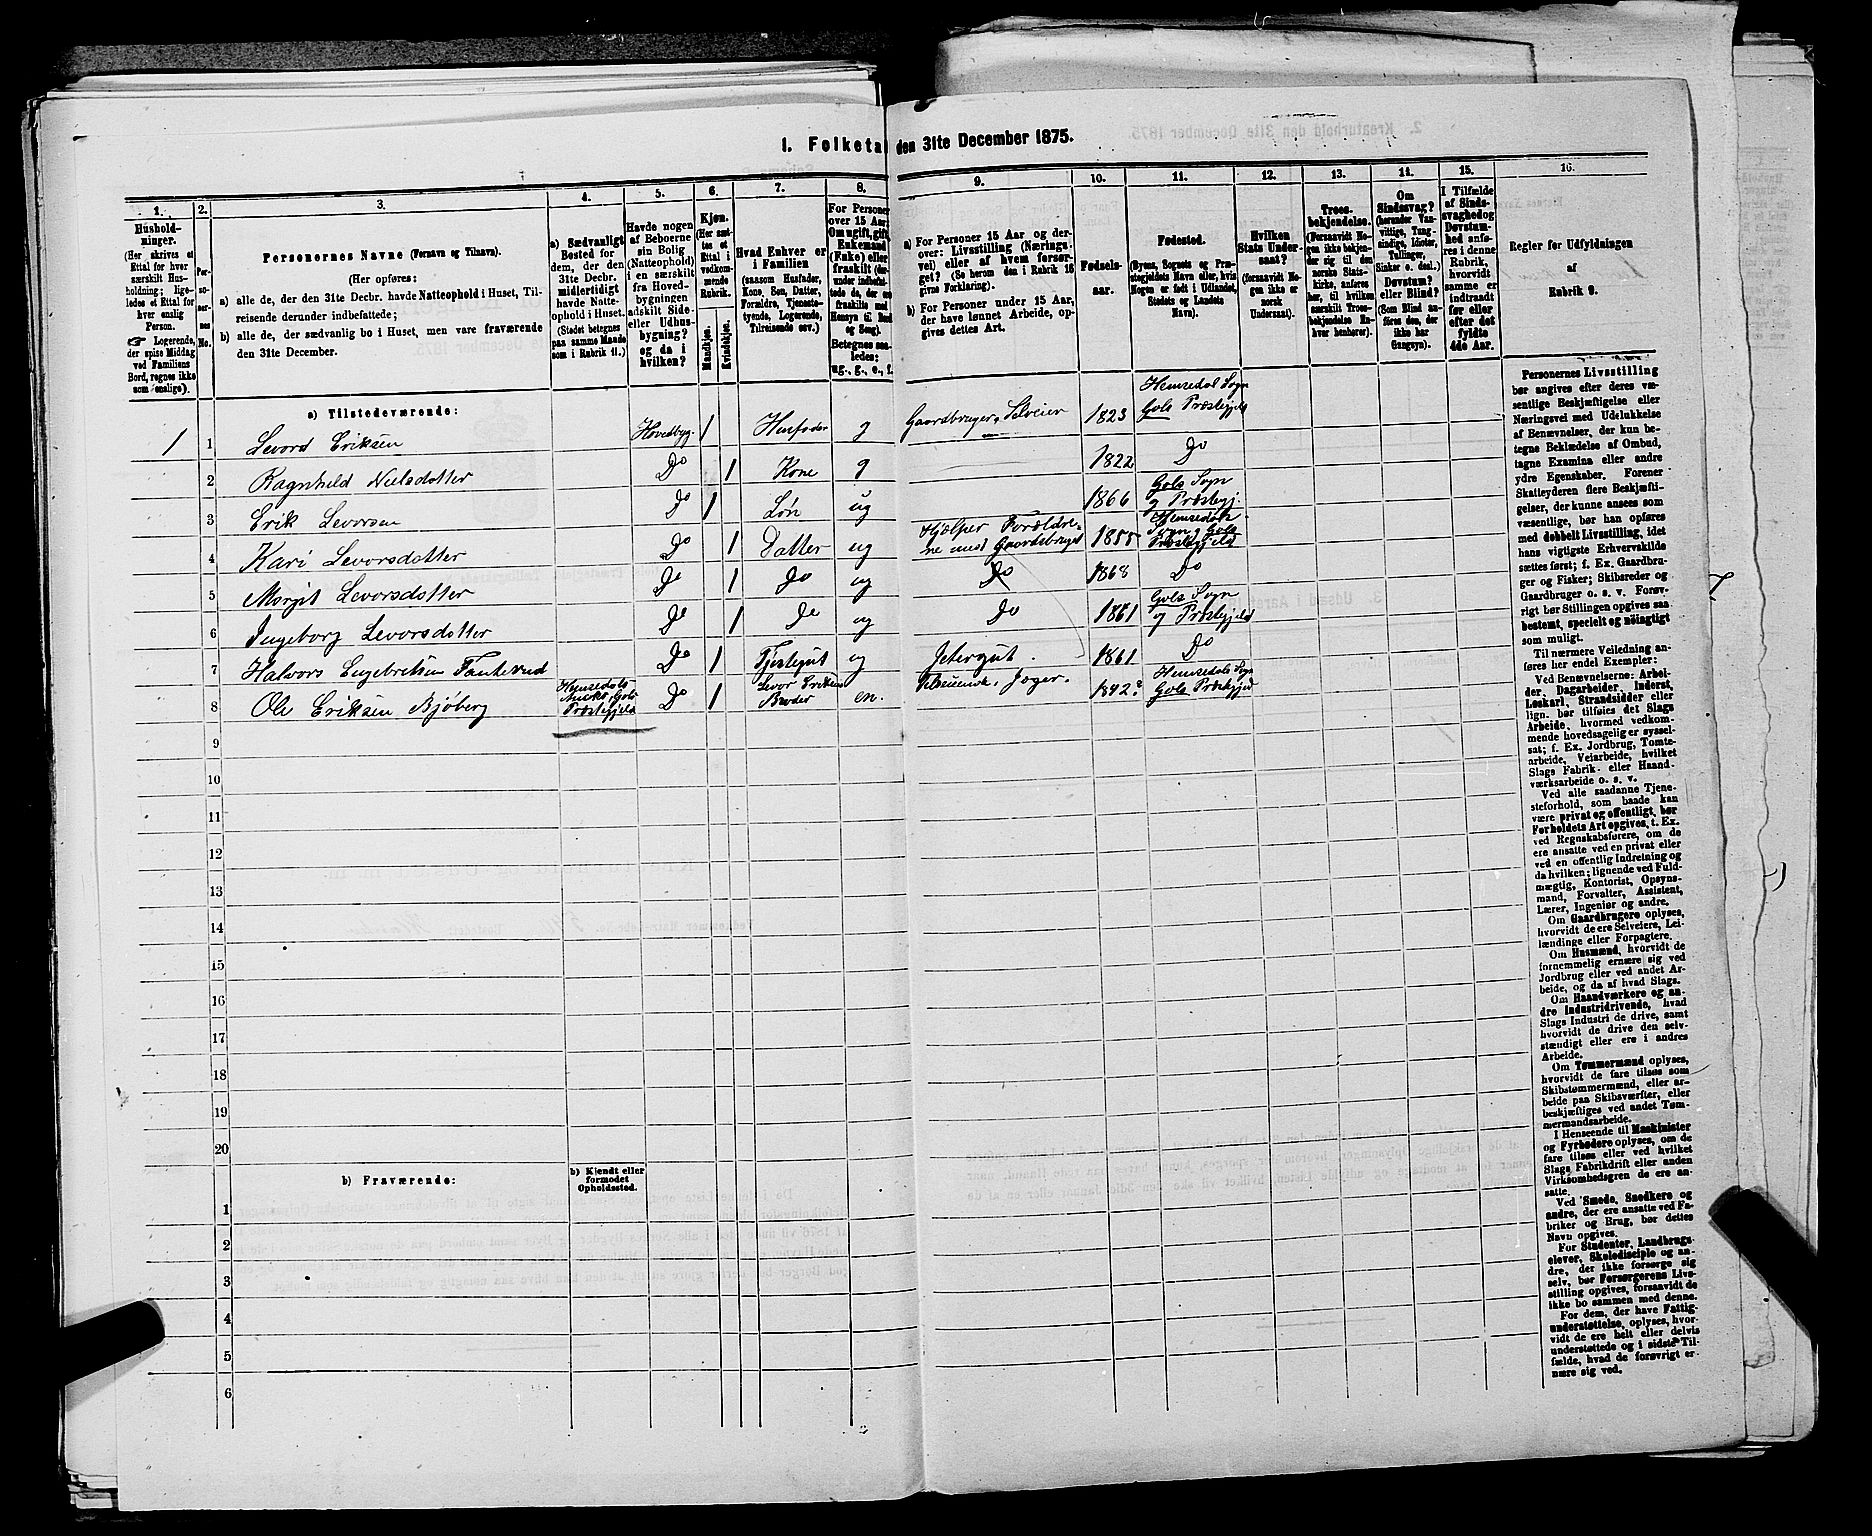 1. Folketal den 31te December 1875.
1.
Hushold-
ninger.
(Her skrives et
Ettal for hver
særskilt Hus-
holdning; lige-
ledes et Ettal for
hver enslig
Person.
☞ Logerende,
der spise Middag
ved Familiens
Bord, regnes ikke
som enslige).
2.
Per-
so-
ner-
nes
No.
3.
Personernes Navne (Fornavn og Tilnavn).
(Her opføres:
a) alle de, der den 31te Decbr. havde Natteophold i Huset, Til-
reisende derunder indbefattede;
b) alle de, der sædvanlig bo i Huset, men vare fraværende
den 31te December.
4.
a) Sædvanligt
Bosted for
dem, der den
31te Decbr.
midlertidigt
havde Natte-
ophold i Huset.
(Stedet betegnes
paa samme Maade
som i Rubrik 11.)
5.
Havde nogen
af Beboerne
sin Bolig
(Natteophold)
i en særskilt
fra Hoved-
bygningen
adskilt Side-
eller Udhus-
bygning?
og da i
hvilken?
6.
Kjøn.
(Her sæt-
tes et
Ettal i
vedkom-
mende
Rubrik.
Mandkjøn.
Kvindekjøn.
7.
Hvad Enhver er
i Familien
(saasom Husfader,
Kone, Søn, Datter,
Forældre, Tjeneste-
tyende, Logerende,
Tilreisende osv.)
8.
For Personer
over 15 Aar:
Om ugift, gift,
Enkemand
(Enke) eller
fraskilt
Betegnes saa-
ledes:
ug., g., e., f.
9.
a) For Personer 15 Aar og der-
over: Livsstilling (Nærings-
vei) eller af hvem forsør-
get? (Se herom den i Rubrik 16
givne Forklaring).
b) For Personer under 15 Aar,
der have lønnet Arbeide, op-
gives dettes Art.
10.
Fødsels-
aar.
11.
Fødested.
(Byens, Sognets og Præ-
stegjeldets Navn eller, hvis
Nogen er født i Udlandet,
Stedets og Landets
Navn).
12.
Hvilken
Stats Under-
saat?
(forsaavidt No-
gen ikke er
norsk
Undersaat).
13.
Troes-
bekjendelse.
(Forsaavidt No-
gen ikke bekjen-
der sig til den
norske Stats-
kirke, anføres
her, til hvilken
Troes-
bekjendelse En-
hver henhører).
14.
Om
Sindssvag?
(herunder Van-
vittige, Tung-
sindige, Idioter,
Tullinger,
Sinker o. desl.)
Døvstum?
eller Blind?
(Som Blind an-
føres den, der
ikke har
Gangsyn).
15.
I Tilfælde
af Sinds-
svaghed og
Døvstum-
hed anfø-
res i denne
Rubrik,
hvorvidt
samme er
indtraadt
før eller
efter det
fyldte
4de Aar.
16.
Regler for Udfyldningen
af
Rubrik 9.
a) Tilstedeværende:
1 1 Levord Eriksen Hovedbyg. 1 Husfader g Gaardbruger, Selveier 1823 Hemsedal Sogn
Gols Præstegjeld
2 Ragnhild Nielsdotter Do 1 Kone g 1822 Do
3 Erik Levorsen Do 1 Søn ug 1866 Gols Sogn
og Præstegj.
4 Kari Levorsdotter Do 1 Datter ug Hjælper Forældre-
ne med Gaardsbruget 1855 Hemsedals
Sogn, Gols
Præstegjeld
5 Margit Levorsdotter Do 1 Do ug Do 1868 Do
6 Ingeborg Levorsdotter Do 1 Do ug Do 1861 Gols Sogn
og Præstegjeld
7 Halvors Engebretsen Fantesrud Do 1 Tjenstegut ug Jetergut. 1861 Do
8 Ole Eriksen Bjøberg Hemsedals
Annex, Gols
Præstegjeld Do 1 Levor Eriksens
Broder en. Tilreisende, Jæger. 1842 Hemsedals Sogn
Gols Præstegjeld
9
10
11
12
13
14
15
16
17
18
19
20
b) Fraværende:
b) Kjendt eller
formodet
Opholdssted.
1
2
3
4
5
6
Personernes Livsstilling
bør angives efter deres væ-
sentlige Beskjæftigelse eller
Næringsvei med Udelukkelse
af Benævnelser, der kun be-
tegne Beklædelse af Ombud,
tagne Examina eller andre
ydre Egenskaber. Forener
Skatteyderen flere Beskjæfti-
gelser, der kunne ansees som
væsentlige, bør han opføres
med dobbelt Livsstilling, idet
hans vigtigste Erhvervskilde
sættes først; f. Ex. Gaardbru-
ger og Fisker; Skibsreder og
Gaardbruger o. s. v. Forøv-
rigt bør Stillingen opgives saa
bestemt, specielt og nöiagtigt
som muligt.
Til nærmere Veiledning an-
føres her endel Exempler:
Ved Benævnelserne: Arbei-
der, Dagarbeider, Inderst,
Løskarl, Strandsidder eller
lign. bør tilføies det Slags
Arbeide, hvormed vedkom-
mende hovedsagelig er syssel-
sat; f. Ex. Jordbrug, Tomte-
arbeide, Veiarbeide, hvilket
Slags Fabrik- eller Haand-
værksarbeide o. s. v.
Ved alle saadanne Tjene-
steforhold, som baade kan
være privat og offentligt, bør
Forholdets Art opgives, t. Ex.
ved Regnskabsførere, om de
ere ansatte ved en privat eller
ved en offentlig Indretning og
da hvilken; lignende ved Fuld-
mægtig, Kontorist, Opsyns-
mand, Forvalter, Assistent,
Lærer, Ingeniør og andre.
Om Gaardbrugere oplyses,
hvorvidt de ere Selveiere, Lei-
lændinge eller Forpagtere.
Om Husmænd, hvorvidt de
fornemmelig ernære sig ved
Jordbrug eller ved andet Ar-
beide, og da af hvad Slags.
Om Haandværkere og an-
dre Industridrivende, hvad
Slags Industri de drive, samt
hvorvidt de drive den selv-
stændigt eller ere i andres
Arbeide.
Om Tømmermænd oplyses,
hvorvidt de fare tilsøs som
Skibstømmermænd, eller ar-
beide paa Skibsværfter, eller
beskjæftiges ved andet Tøm-
mermandsarbeide.
I Henseende til Maskinister
og Fyrbødere oplyses, om de
fare tilsøs eller ved hvilket
Slags Fabrikdrift eller anden
Virksomhedsgren de ere an-
satte.
Ved Smede, Snedkere og
andre, der ere ansatte ved Fa-
briker og Brug, bør dettes
Navn opgives.
For Studenter, Landbrugs-
elever, Skoledisciple og an-
dre, der ikke forsørge sig
selv, bør Forsørgerens Livs-
stilling opgives, forsaavidt de
ikke bo sammen med denne.
For dem, der have Fattig-
understøttelse, oplyses, hvor-
vidt de ere helt eller delvis
understøttede og i sidste Til-
fælde, hvad de forøvrigt er-
nære sig ved.